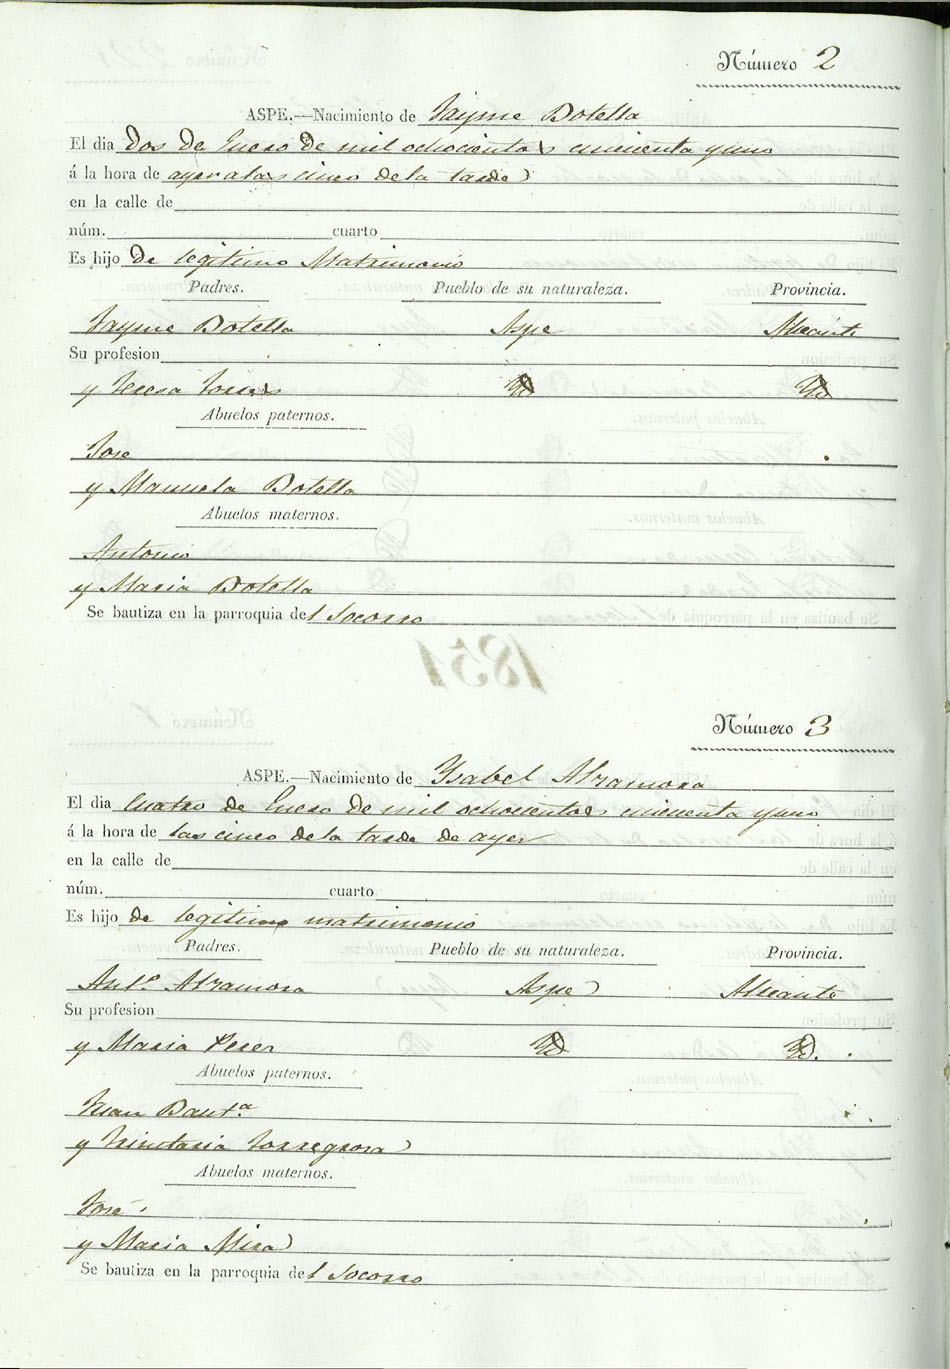 Número 2
ASPE.—Nacimiento de Jayme Botella
El dia dos de Enero de mil ochocientos cincuenta y uno
á la hora de ayer a las cinco de la tarde
en la calle de
núm. cuarto
Es hijo de legitimo Matrimonio
Padres. Pueblo de su naturaleza. Provincia.
Jayme Botella Aspe Alicante
Su profesion
y Teresa Torres Yd Yd
Abuelos paternos.
Jose
y Manuela Botella
Abuelos maternos.
Antonio
y Maria Botella
Se bautiza en la parroquia del Socorro
1851
Número 3
ASPE.—Nacimiento de Ysabel Alzamora
El dia Cuatro de Enero de mil ochocientos cincuenta y uno
á la hora de las cinco de la tarde de ayer
en la calle de
núm. cuarto
Es hijo de legitimo matrimonio
Padres. Pueblo de su naturaleza. Provincia.
Ant.º Alzamora Aspe Alicante
Su profesion
y Maria Perez Yd Yd.
Abuelos paternos.
Juan Baut.ª
y Trinitaria Torregrosa
Abuelos maternos.
José
y Maria Mira
Se bautiza en la parroquia del Socorro